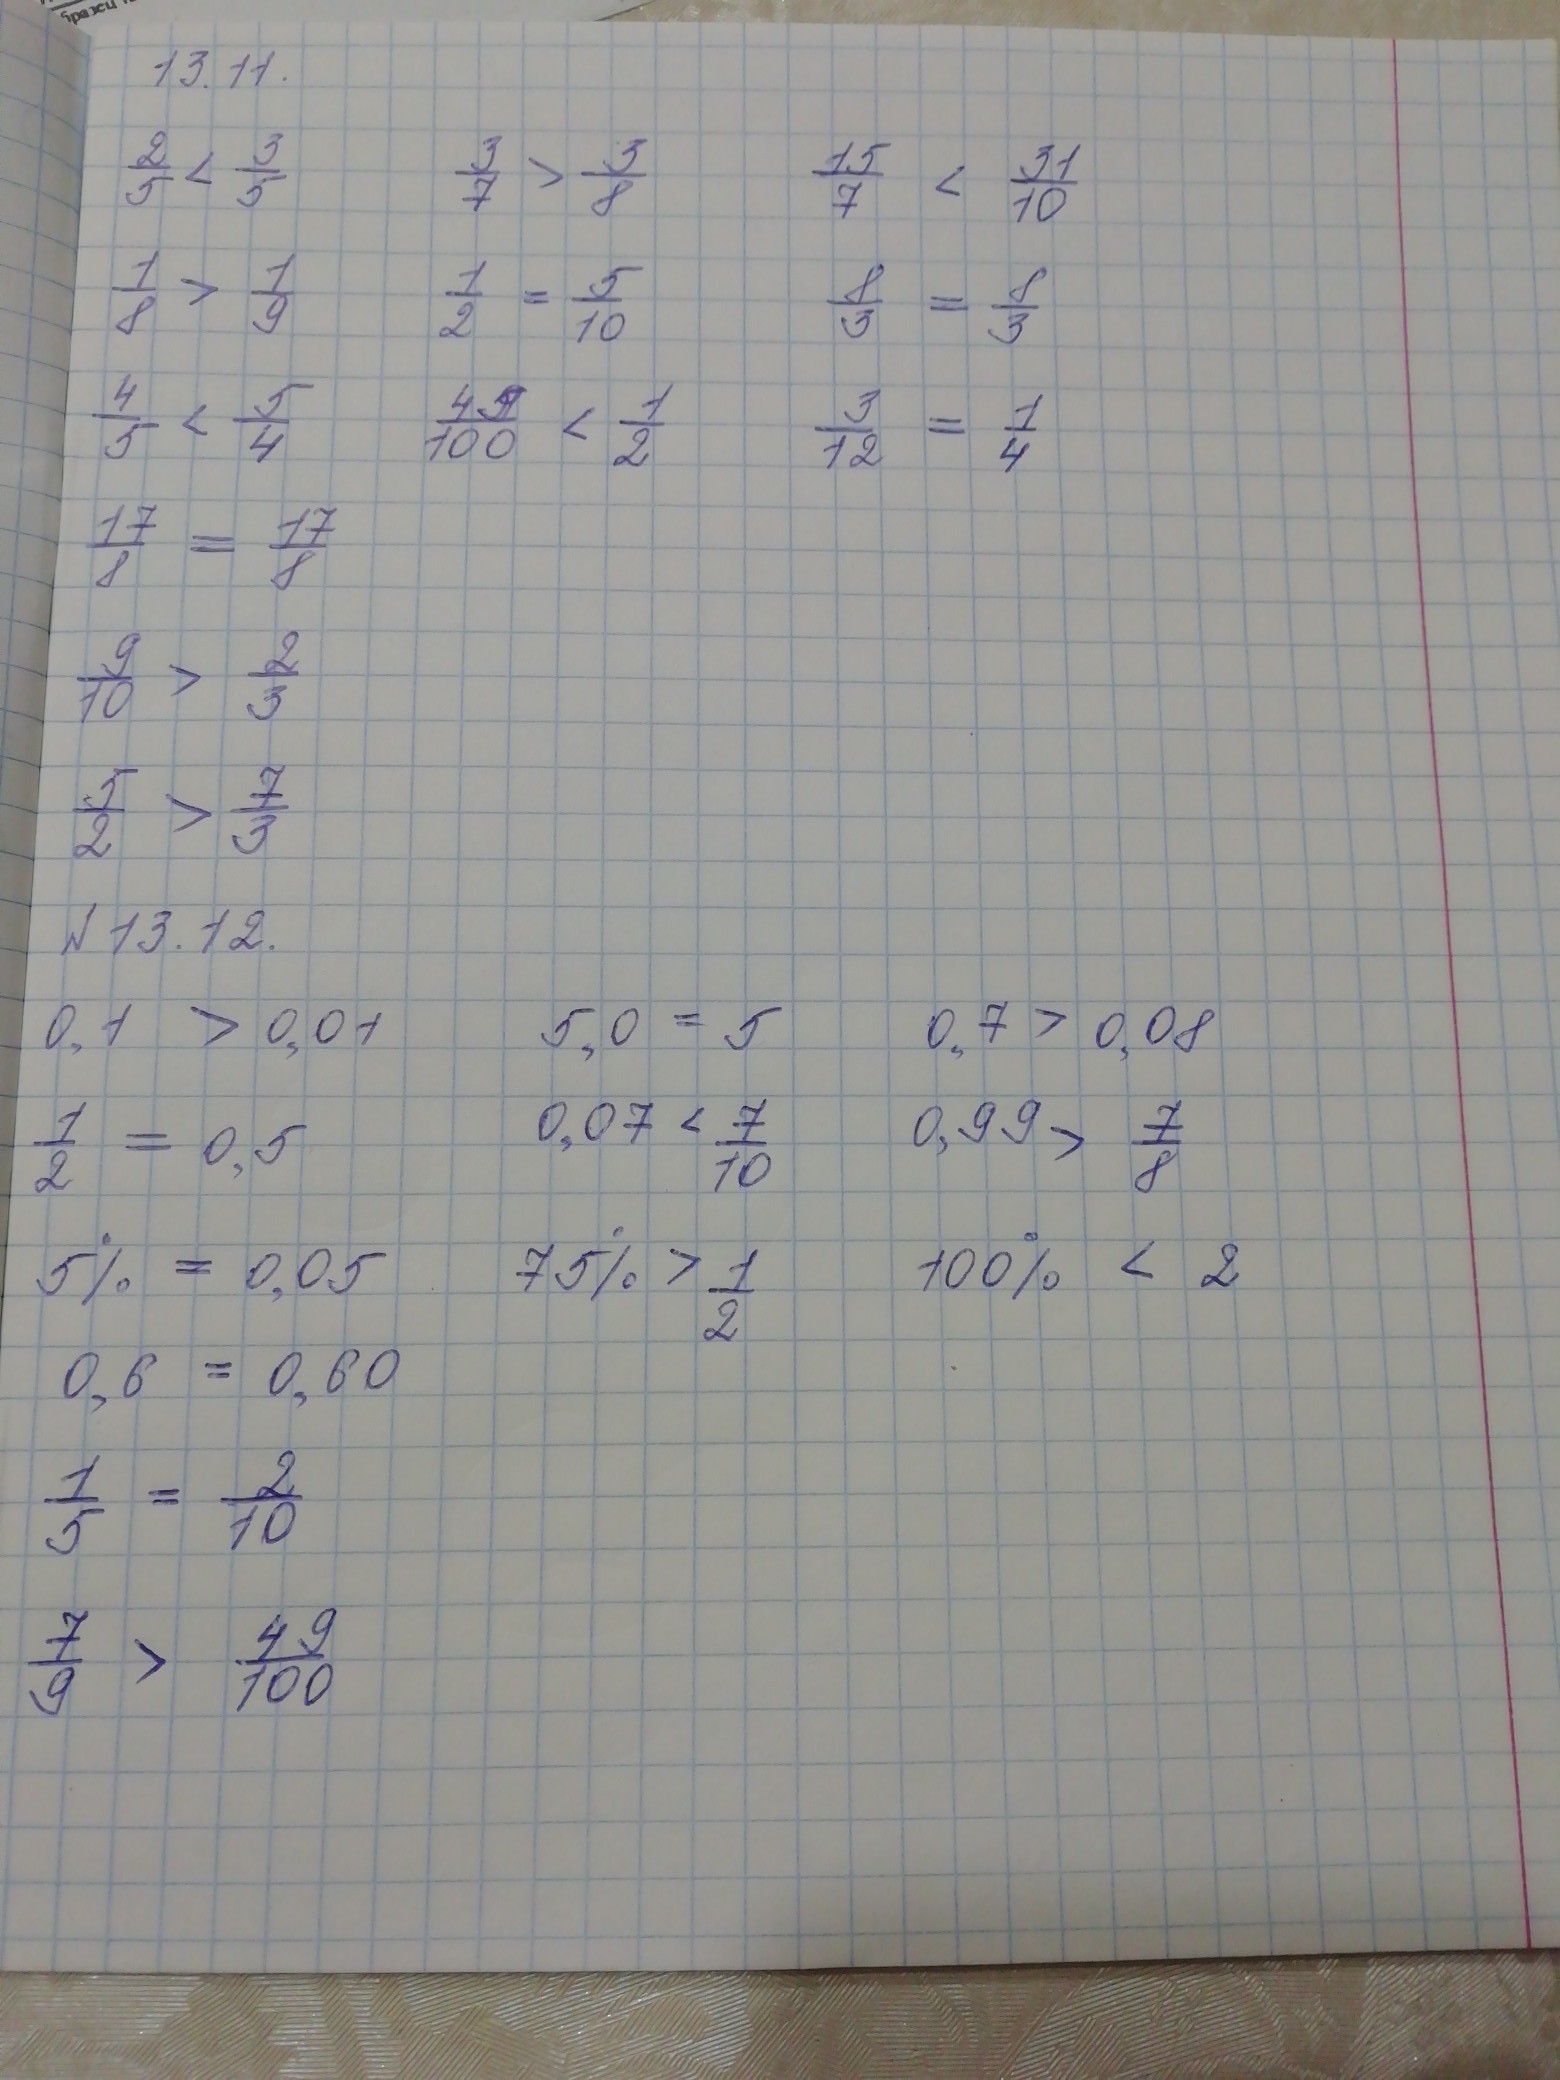 бразец
13.11.
2/5 < 3/5 3/7 > 3/8 15/7 < 31/10
1/8 > 1/9 1/2 = 5/10 8/3 = 8/3
4/5 < 5/4 /100 < 1/2 3/12 = 1/4
17/8 = 17/8
9/10 > 2/3
5/2 > 7/3
№ 13.12.
0,1 > 0,01 5,0 = 5 0,7 > 0,08
1/2 = 0,5 0,07 < 7/10 0,99 > 7/8
5% = 0,05 75% > 1/2 100% < 2
0,6 = 0,60
1/5 = 2/10
7/9 > 49/100